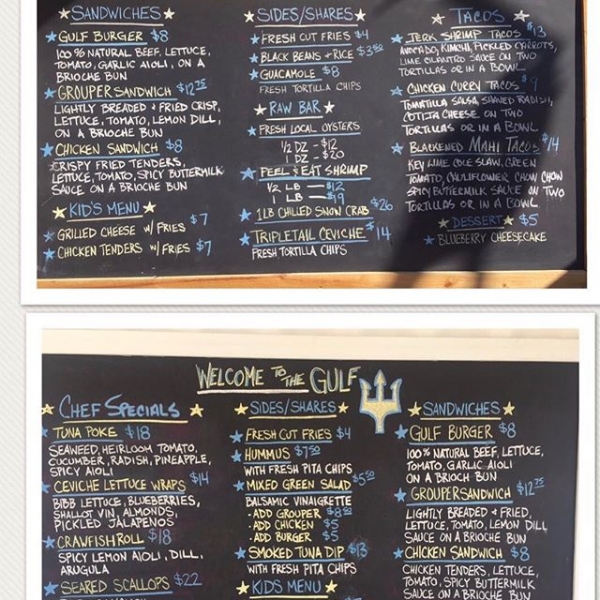 SANDWICHES
GULF BURGER $8
100% NATURAL BEEF, LETTUCE,
TOMATO, GARLIC AIOLI, ON A
BRIOCHE BUN
GROUPER SANDWICH $12.75
LIGHTLY BREADED + FRIED CRISP,
LETTUCE, TOMATO, LEMON DILL,
ON A BRIOCHE BUN
CHICKEN SANDWICH $8
CRISPY FRIED TENDERS,
LETTUCE, TOMATO, SPICY BUTTERMILK
SAUCE ON A BRIOCHE BUN
KID'S MENU
GRILLED CHEESE W/ FRIES $7
CHICKEN TENDERS W/ FRIES $7
SIDES/SHARES
FRESH CUT FRIES $4
BLACK BEANS + RICE
GUACAMOLE $8
FRESH TORTILLA CHIPS
RAW BAR
FRESH LOCAL OYSTERS
1/2 DZ - $12
1 DZ - $20
PEEL & EAT SHRIMP
1/2 LB - $12
1 LB - $19
1LB CHILLED SNOW CRAB $26
TRIPLETAIL CEVICHE $14
FRESH TORTILLA CHIPS
TACOS
JERK SHRIMP TACOS $13
AVOCADO, KIMCHI, PICKLED CARROTS,
LIME CILANTRO SAUCE ON TWO
TORTILLAS OR IN A BOWL
CHICKEN CURRY TACOS 9
TOMATILLA SALSA, SHAVED RADISH,
COTIJA CHEESE ON TWO
TORTILLAS OR IN A BOWL
BLACKENED MAHI TACOS $14
KEY LIME COLE SLAW, GREEN
TOMATO, CAULIFLOWER CHOW CHOW
SPICY BUTTERMILK SAUCE ON TWO
TORTILLAS OR IN A BOWL
DESSERT $5
BLUEBERRY CHEESECAKE
WELCOME TO THE GULF
CHEF SPECIALS
TUNA POKE $18
SEAWEED, HEIRLOOM TOMATO,
CUCUMBER, RADISH, PINEAPPLE,
SPICY AIOLI
CEVICHE LETTUCE WRAPS $14
BIBB LETTUCE, BLUEBERRIES,
SHALLOT VIN, ALMONDS,
PICKLED JALAPENOS
CRAWFISH ROLL $18
SPICY LEMON AIOLI, DILL,
ARUGULA
SEARED SCALLOPS $22
SIDES/SHARES
FRESH CUT FRIES $4
HUMMUS $7.50
WITH FRESH PITA CHIPS
MIXED GREEN SALAD $5.50
BALSAMIC VINAIGRETTE
· ADD GROUPER $8
· ADD CHICKEN $5
· ADD BURGER $5
SMOKED TUNA DIP $13
WITH FRESH PITA CHIPS
KID'S MENU
SANDWICHES
GULF BURGER $8
100% NATURAL BEEF, LETTUCE,
TOMATO, GARLIC AIOLI
ON A BRIOCH BUN
GROUPER SANDWICH $12.75
LIGHTLY BREADED + FRIED,
LETTUCE, TOMATO, LEMON DILL
SAUCE ON A BRIOCHE BUN
CHICKEN SANDWICH $8
CHICKEN TENDERS, LETTUCE,
TOMATO, SPICY BUTTERMILK
SAUCE ON A BRIOCHE BUN